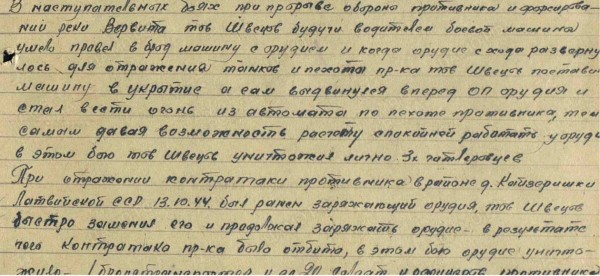 В наступательных боях при прорыве обороны противника и форсирова-
нии реки Вервита тов Швецов будучи водителем боевой машины
умело провел в брод машину с орудием и когда орудие с хода разверну
лось для отражения танков и пехоты пр-ка тов Швецов поставил
машину в укрытие а сам выдвинулся вперед ОП орудия и
стал вести огонь из автомата по пехоте противника, тем
самым давая возможность расчету спокойней работать у орудия
в этом бою тов Швецов уничтожил лично 3х гитлеровцев
При отражении контратаки противника в районе д.
Латвийской ССР 13.10.44 был ранен заряжающий орудия, тов Швецов
быстро заменил его и продолжал заряжать орудие - в результате
чего контратака пр-ка была отбита, в этом бою орудие уничто-
жило 1 бронетранспортер и до 20 солдат и офицеров противника